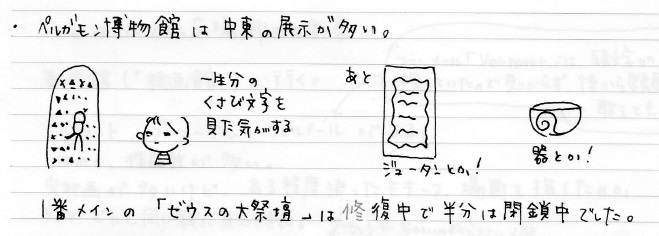 ・ペルガモン博物館は中東の展示が多い。
一生分の
くさび文字を
見た気がする
あと
ジュータンとか!
器とか!
1番メインの「ゼウスの大祭壇」は修復中で半分は閉鎖中でした。